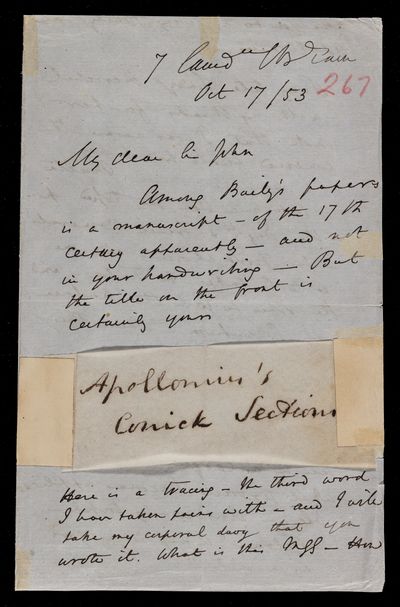 7 Camdn St & Town
Oct 17/53 267
My dear Sir John
Among Baily's papers
is a manuscript - of the 17th
century apparently - and not
in your handwriting - But
the title on the front is
certainly yours
Apollonius's
Conick Sections
Here is a tracing - the third word
I have taken pains with - and I will
take my corporal davy that you
wrote it. What is this MSS - How